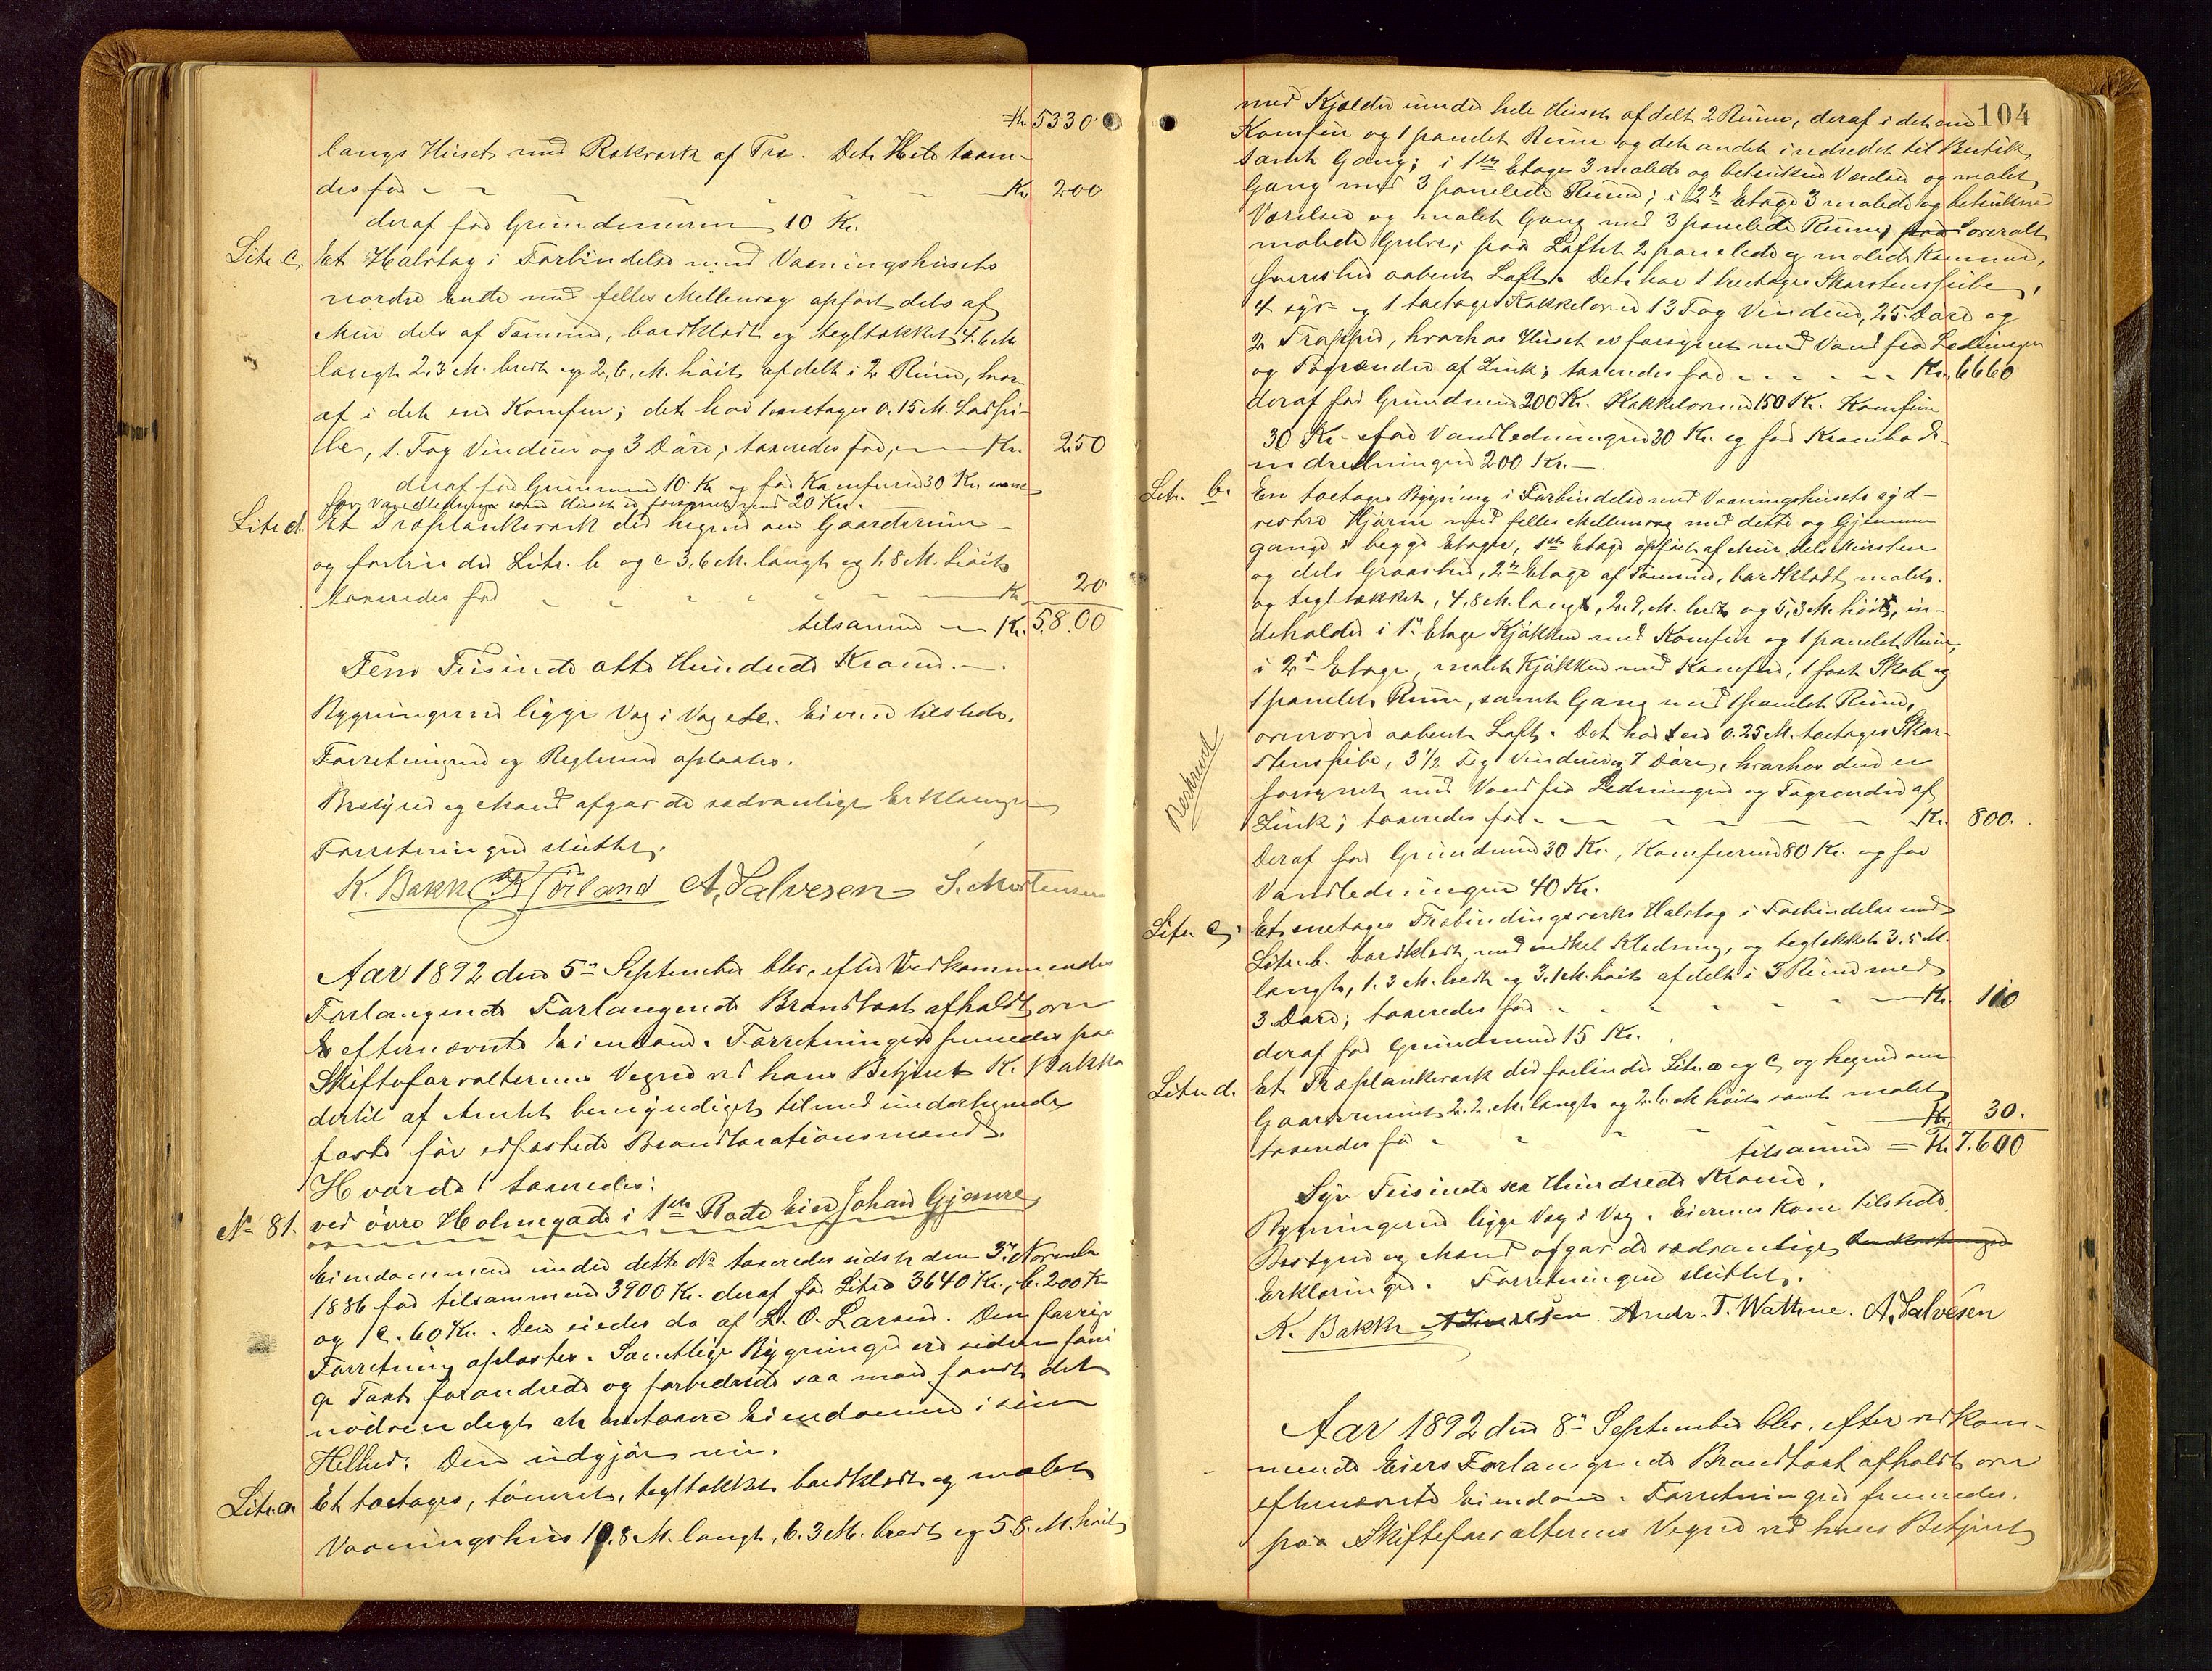 Kr. 5330.
langs Huset med Rækværk af Træ. Det Hele taxeredes
des for Kr. 200
deraf for Grundmuren 10 Kr.
Litr. C. Et Halvtag i Forbindelse med Vaaningshusets
nordre Ende med felles Mellemvæg opført dels af
Mur dels af Tømmer, bordklædt og tegltækket 4.6 M.
langt 2,3 M. bredt og 2,6 M. höit afdelt i 2 Rum, hvor-
af i det ene Komfur; det har 1 enetages 0.15 M. Ladpi-
be, 1 Fag Vinduer og 3 Döre; taxeredes for Kr. 250
deraf for Grunmuren 10 Kr. og for Kamfuren 30 Kr. samt
for Vandledningen hvormed Huset er forsynet med 20 Kr.
Litr. d. Et Træplankeværk der hegner om Gaardsrum-
og forbinder Litr. b og c 3,6 M. langt og 1,8 M. höit
taxeredes for Kr. 20
tilsammen Kr. 5.800
Fem Tusinde otte Hundrede Kroner.
Bygningerne ligge Væg i Væg etc. Eieren tilstede.
Forretningen og Reglerne oplæstes.
Bestyrer og Mænd afgav de sædvanlige Erklæringer
Forretningen sluttet.
K. Bakke K Görland A. Salvesen S. Mortensen
Aar 1892 den 5te September blev efter Vedkommendes
Forlangende Forlangende Brandtaxt afholdt over
E efternævnte Eiendom. Forretningen fremmedes paa
Skifteforvalterens Vegne ved hans Betjent K. Bakke
dertil af Amtet bemyndiget tilmed undertegnede
faste før edfæstede Brandtaxationsmænd.
Hvorda! taxeredes:
No 81. ved övre Holmegade i 1ste Rode Eier Johan Gjemre
Eiendommen under dette No taxeredes sidst den 3die Novembr
1886 for tilsammen 3900 Kr. deraf for Litr a 3640 Kr., b. 200 Kr
og c. 60 Kr. Den eiedes da af L. O. Larsen. Den forrige
Forretning oplæstes. Samtlige Bygninger ere siden forri
ge Taxt forandrede og forbedrede saa man fandt det
nödvendigt at omtaxere Eiendommen i sin
Helhed. Den udgjör nu.
Litr. a Et toetages, tömret, tegltækket bordklædt og malet
Vaaningshus 10.8 M. langt, 6.3 M. bredt og 5.8. M. höit
104
med Kjælder under hele Huset afdelt 2 Rum, deraf i det ene
Komfur og 1 panelet Rum og det andet indredet til Butik,
samt Gang; i 1ste Etage 3 malede og betrukne Værelser og malet
Gang med 3 panelede Rum; i 2den Etage 3 malede og betrukne
Værelser og malet Gang med 3 panelede Rum, paa overalt
malede Gulve; paa Loftet 2 panelede og malede Kammer,
forresten aabent Loft. Det har 1 tretages Skorstenspibe,
4 og 1 toetages Kakkelovne 13 Fag Vinduer, 25 Döre og
2 Trapper, hvorhos Huset er forsynet med Vand fra Ledningen
og Tagrender af Zink; taxeredes for Kr. 6660
deraf for Grundmur 200 Kr. Kakkelovnene 150 Kr. Komfur
30 Kr. for Vandledningen 20 Kr. og for Krambod-
indredningen 200 Kr.
Litr. b. En toetages Bygning i Forbindelse med Vaaningshusets syd-
vestre Hjörne med felles Mellemvæg med dette og Gjennem
gange i begge Etager, 1ste Etage opfört af Mur dels Mursten
og dels Graasten, 2den Etage af Tömmer, bordklædt, malet
og tegltækket, 4,8 M. langt, 2.9. M. bredt og 5,3 M. höit, in-
deholder i 1te Etage Kjökken med Komfur og 1 panelet Rum,
i 2den Etage malet Kjökken med Komfur, 1 fast Skab og
1 panelet Rum, samt Gang med 1 panelet Rum,
ovenover aabent Loft. Det har en 0.25 M. toetages Skor-
stenspibe, 3 1/2 Fag Vinduer og 7 Döre, hvorhos den er
forsynet med Vand fra Ledningen og Tagrender af
Zink; taxeredes for Kr. 800.
Deraf for Grundmur 30 Kr., Komfurene 80 Kr. og for
Vandledningen 40 Kr.
Litr. C. Et enetages Træbindingsverks Halvtag i Forbindelse med
Litr. b. bordklædt, med enkel Klædning, og tegltækket 3.5 M.
langt, 1.3 M. bredt og 3.1 M. höit afdelt i 3 Rum med
3 Döre; taxeredes for Kr. 110
deraf for Grundmur 15 Kr.
Litr. d. Et Træplankeværk der forbinder Litr. a og C og hegner om
Gaardsrummet 2.2. M. langt og 2.6. M höit samt malet
taxeredes for Kr. 30.
tilsammen = Kr 7.600
Syv Tusinde sex Hundrede Kroner.
Bygningerne ligge Væg i Væg. Eierens Kone tilstede.
Bestyrer og Mænd afgav de sædvanlige
Erklæringer. Forretningen sluttet.
K. Bakke Andr. T. Wattne. A. Salvesen
Aar 1892 den 8de September blev efter vedkom-
mende Eiers Forlangende Brandtaxt afholdt over
efternævnte Eiendom. Forretningen fremmedes
paa Skifteforvalterens Vegne ved hans Betjent